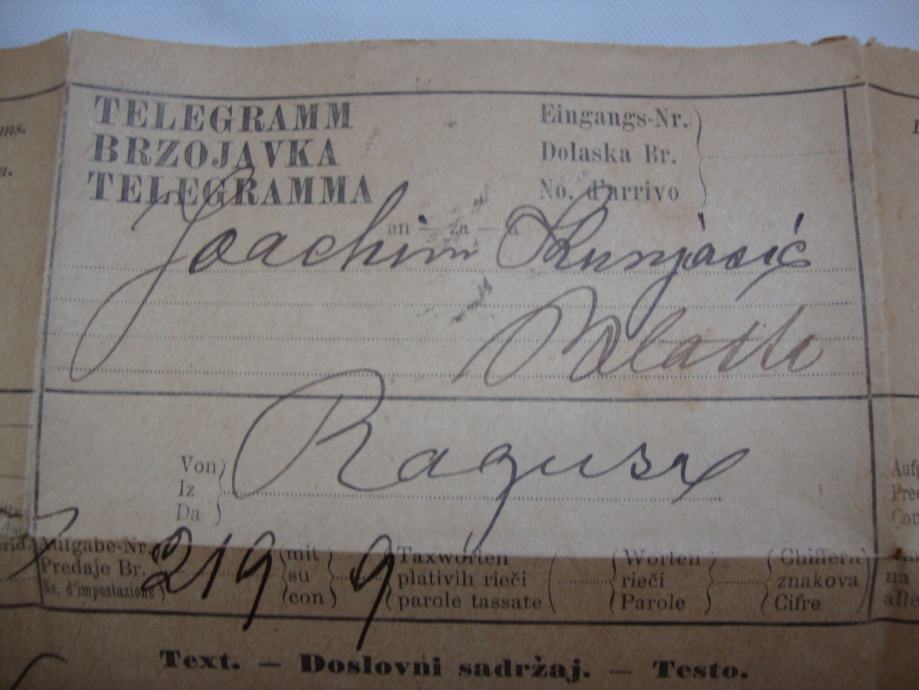 TELEGRAMM
BRZOJAVKA
TELEGRAMMA
Eingangs-Nr.
Dolaska Br.
No. d'arrivo
an — za — a
Joachim Kunjasić
Blatto
Von
Iz
Da
Ragusa
Aufgabe-Nr.
Predaje Br.
No. d'impostazione
219
mit
su
con
9
Taxworten
plativih rieči
parole tassate
Worten
rieči
Parole
Chiffern
znakova
Cifre
Text. — Doslovni sadržaj. — Testo.